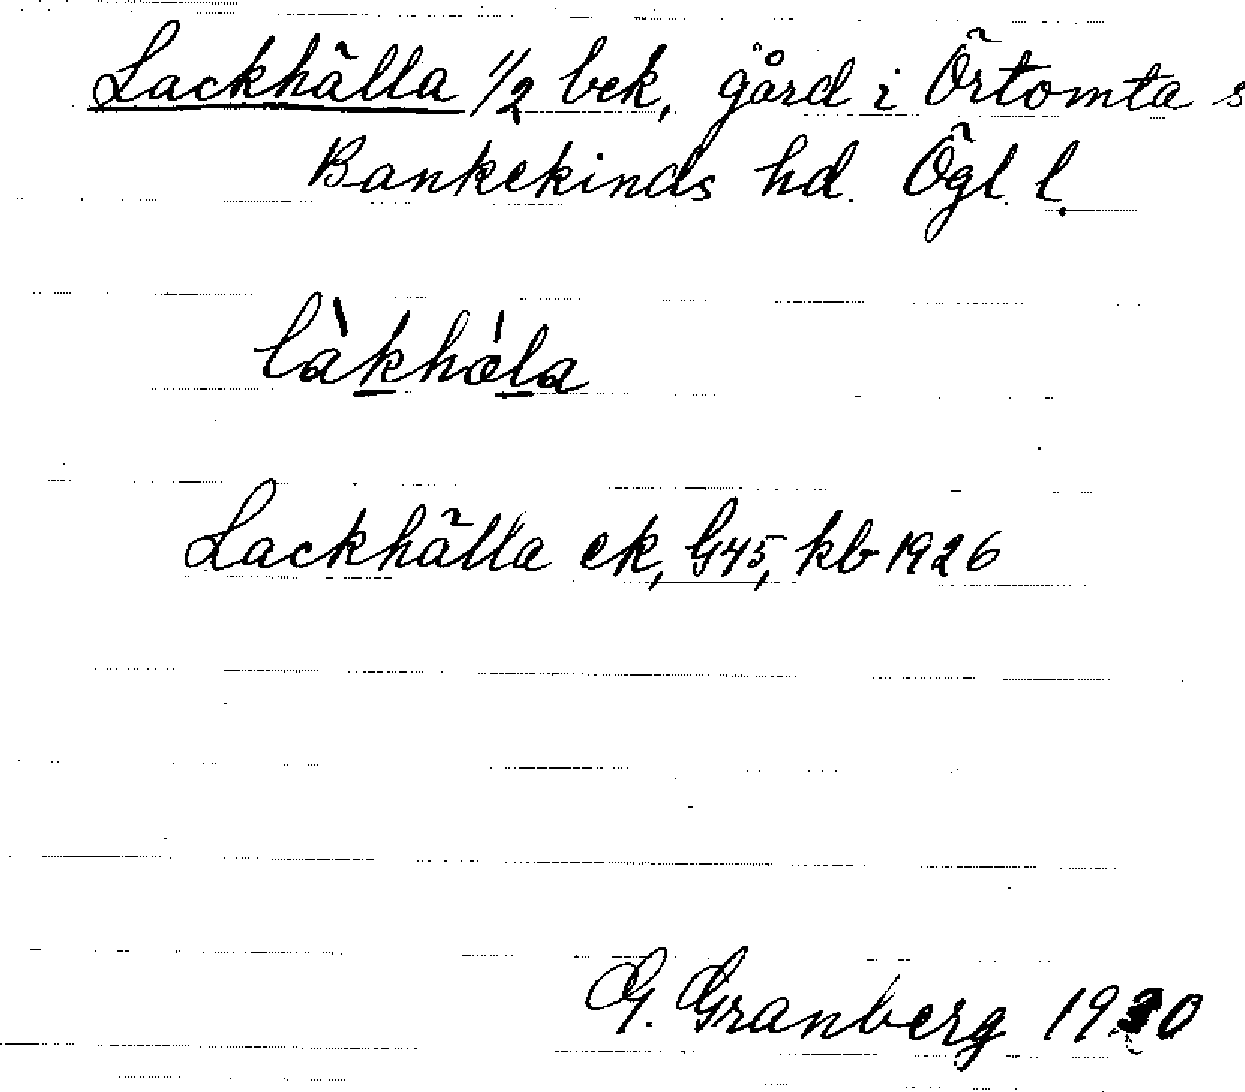 Lackhälla 1/2 bek, gård i Örtomta s
Bankekinds hd. Ögl. l.
Lackhälla ek, G45, kb 1926
G. Granberg 1930